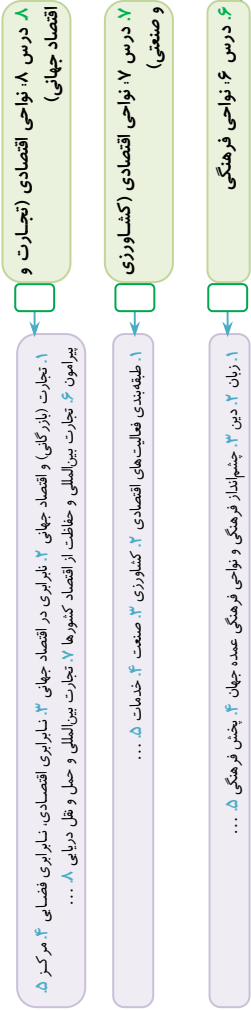 ۶. درس ۶: نواحی فرهنگی
۱. زبان ۲. دین ۳. چشم‌انداز فرهنگی و نواحی فرهنگی عمده جهان ۴. پخش فرهنگی ۵. ...
۷. درس ۷: نواحی اقتصادی (کشاورزی
و صنعتی)
۱. طبقه‌بندی فعالیت‌های اقتصادی ۲. کشاورزی ۳. صنعت ۴. خدمات ۵. ...
۸. درس ۸: نواحی اقتصادی (تجارت و
اقتصاد جهانی)
۱. تجارت (بازرگانی) و اقتصاد جهانی ۲. نابرابری در اقتصاد جهانی ۳. نابرابری اقتصادی، نابرابری فضایی ۴. مرکز ۵.
پیرامون ۶. تجارت بین‌المللی و حفاظت از اقتصاد کشورها ۷. تجارت بین‌المللی و حمل و نقل دریایی ۸. ...